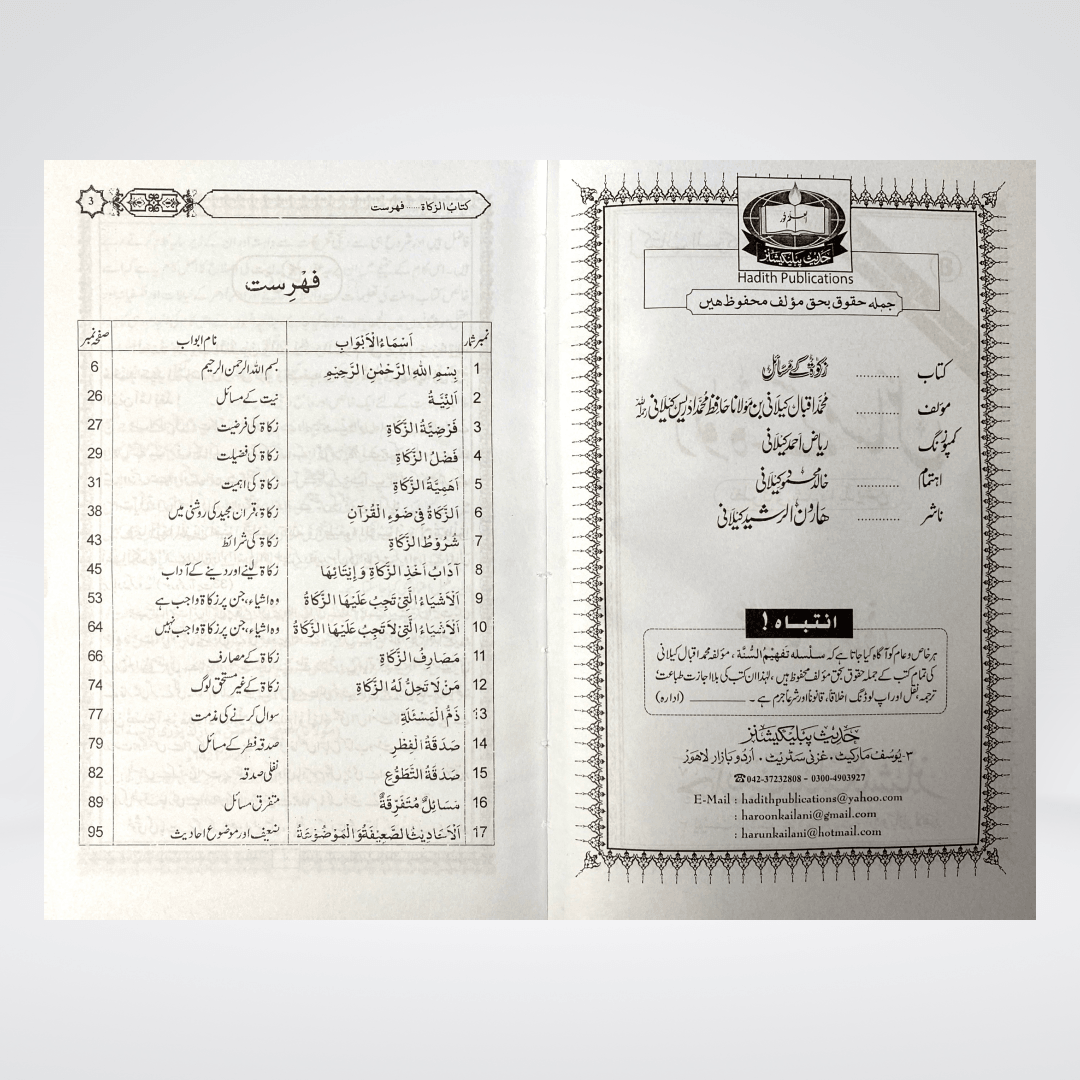 العلم نور
حدیث پبلیکیشنز
Hadith Publications
جملہ حقوق بحق مؤلف محفوظ ھیں
کتاب ............ زکوٰۃ کے مسائل
مؤلف ............ محمد اقبال کیلانی بن مولانا حافظ محمد ادریس کیلانی رحمہ اللہ
کمپوزنگ ............ ریاض احمد کیلانی
اہتمام ............ خالد محمود کیلانی
ناشر ............ ھارون الرشید کیلانی
انتباہ !
ہر خاص و عام کو آگاہ کیا جاتا ہے کہ سلسلہ تفہیم السُّنَّة ، مؤلفہ محمد اقبال کیلانی
کی تمام کتب کے جملہ حقوق بحق مؤلف محفوظ ہیں ، لہٰذا ان کتب کی بلا اجازت طباعت
ترجمہ، نقل اور اپ لوڈنگ اخلاقاً، قانوناً اور شرعاً جرم ہے ۔ ــــــــــــ (ادارہ)
حدیث پبلیکیشنز
۳-یوسف مارکیٹ ۔ غزنی سٹریٹ ۔ اُردو بازار لاھور
☎042-37232808 - 0300-4903927
E-Mail : hadithpublications@yahoo.com
: haroonkailani@gmail.com
: harunkailani@hotmail.com
کتابُ الزکاۃ......فھرست 3
فِھْرِست
نمبر شمار اَسْمَاءُ الْاَبْوَابِ نام ابواب صفحہ نمبر
1 بِسْمِ اللّٰہِ الرَّحْمٰنِ الرَّحِیْمِ بسم اللہ الرحمن الرحیم 6
2 اَلنِّیَّةُ نیت کے مسائل 26
3 فَرْضِیَّةُ الزَّکَاةِ زکاۃ کی فرضیت 27
4 فَضْلُ الزَّکَاةِ زکاۃ کی فضیلت 29
5 اَھَمِیَّةُ الزَّکَاةِ زکاۃ کی اہمیت 31
6 اَلزَّکَاةُ فِیْ ضَوْءِ الْقُرْآنِ زکاۃ، قرآن مجید کی روشنی میں 38
7 شُرُوْطُ الزَّکَاةِ زکاۃ کی شرائط 43
8 آدَابُ اَخْذِ الزَّکَاةِ وَ اِیْتَائِھَا زکاۃ لینے اور دینے کے آداب 45
9 اَلْاَشْیَاءُ الَّتِیْ تَجِبُ عَلَیْھَا الزَّکَاةُ وہ اشیاء، جن پر زکاۃ واجب ہے 53
10 اَلْاَشْیَاءُ الَّتِیْ لاَ تَجِبُ عَلَیْھَا الزَّکَاةُ وہ اشیاء، جن پر زکاۃ واجب نہیں 64
11 مَصَارِفُ الزَّکَاةِ زکاۃ کے مصارف 66
12 مَنْ لاَ تَحِلُّ لَهُ الزَّکَاةِ زکاۃ کے غیر مستحق لوگ 74
13 ذَمُّ الْمَسْئَلَةِ سوال کرنے کی مذمت 77
14 صَدَقَةُ الْفِطْرِ صدقہ فطر کے مسائل 79
15 صَدَقَةُ التَّطَوُّعِ نفلی صدقہ 82
16 مَسَائِلُ مُتَفَرِّقَةٌ متفرق مسائل 89
17 اَلْاَحَادِیْثُ الضَّعِیْفَةُ وَ الْمَوْضُوْعَةُ ضعیف اور موضوع احادیث 95